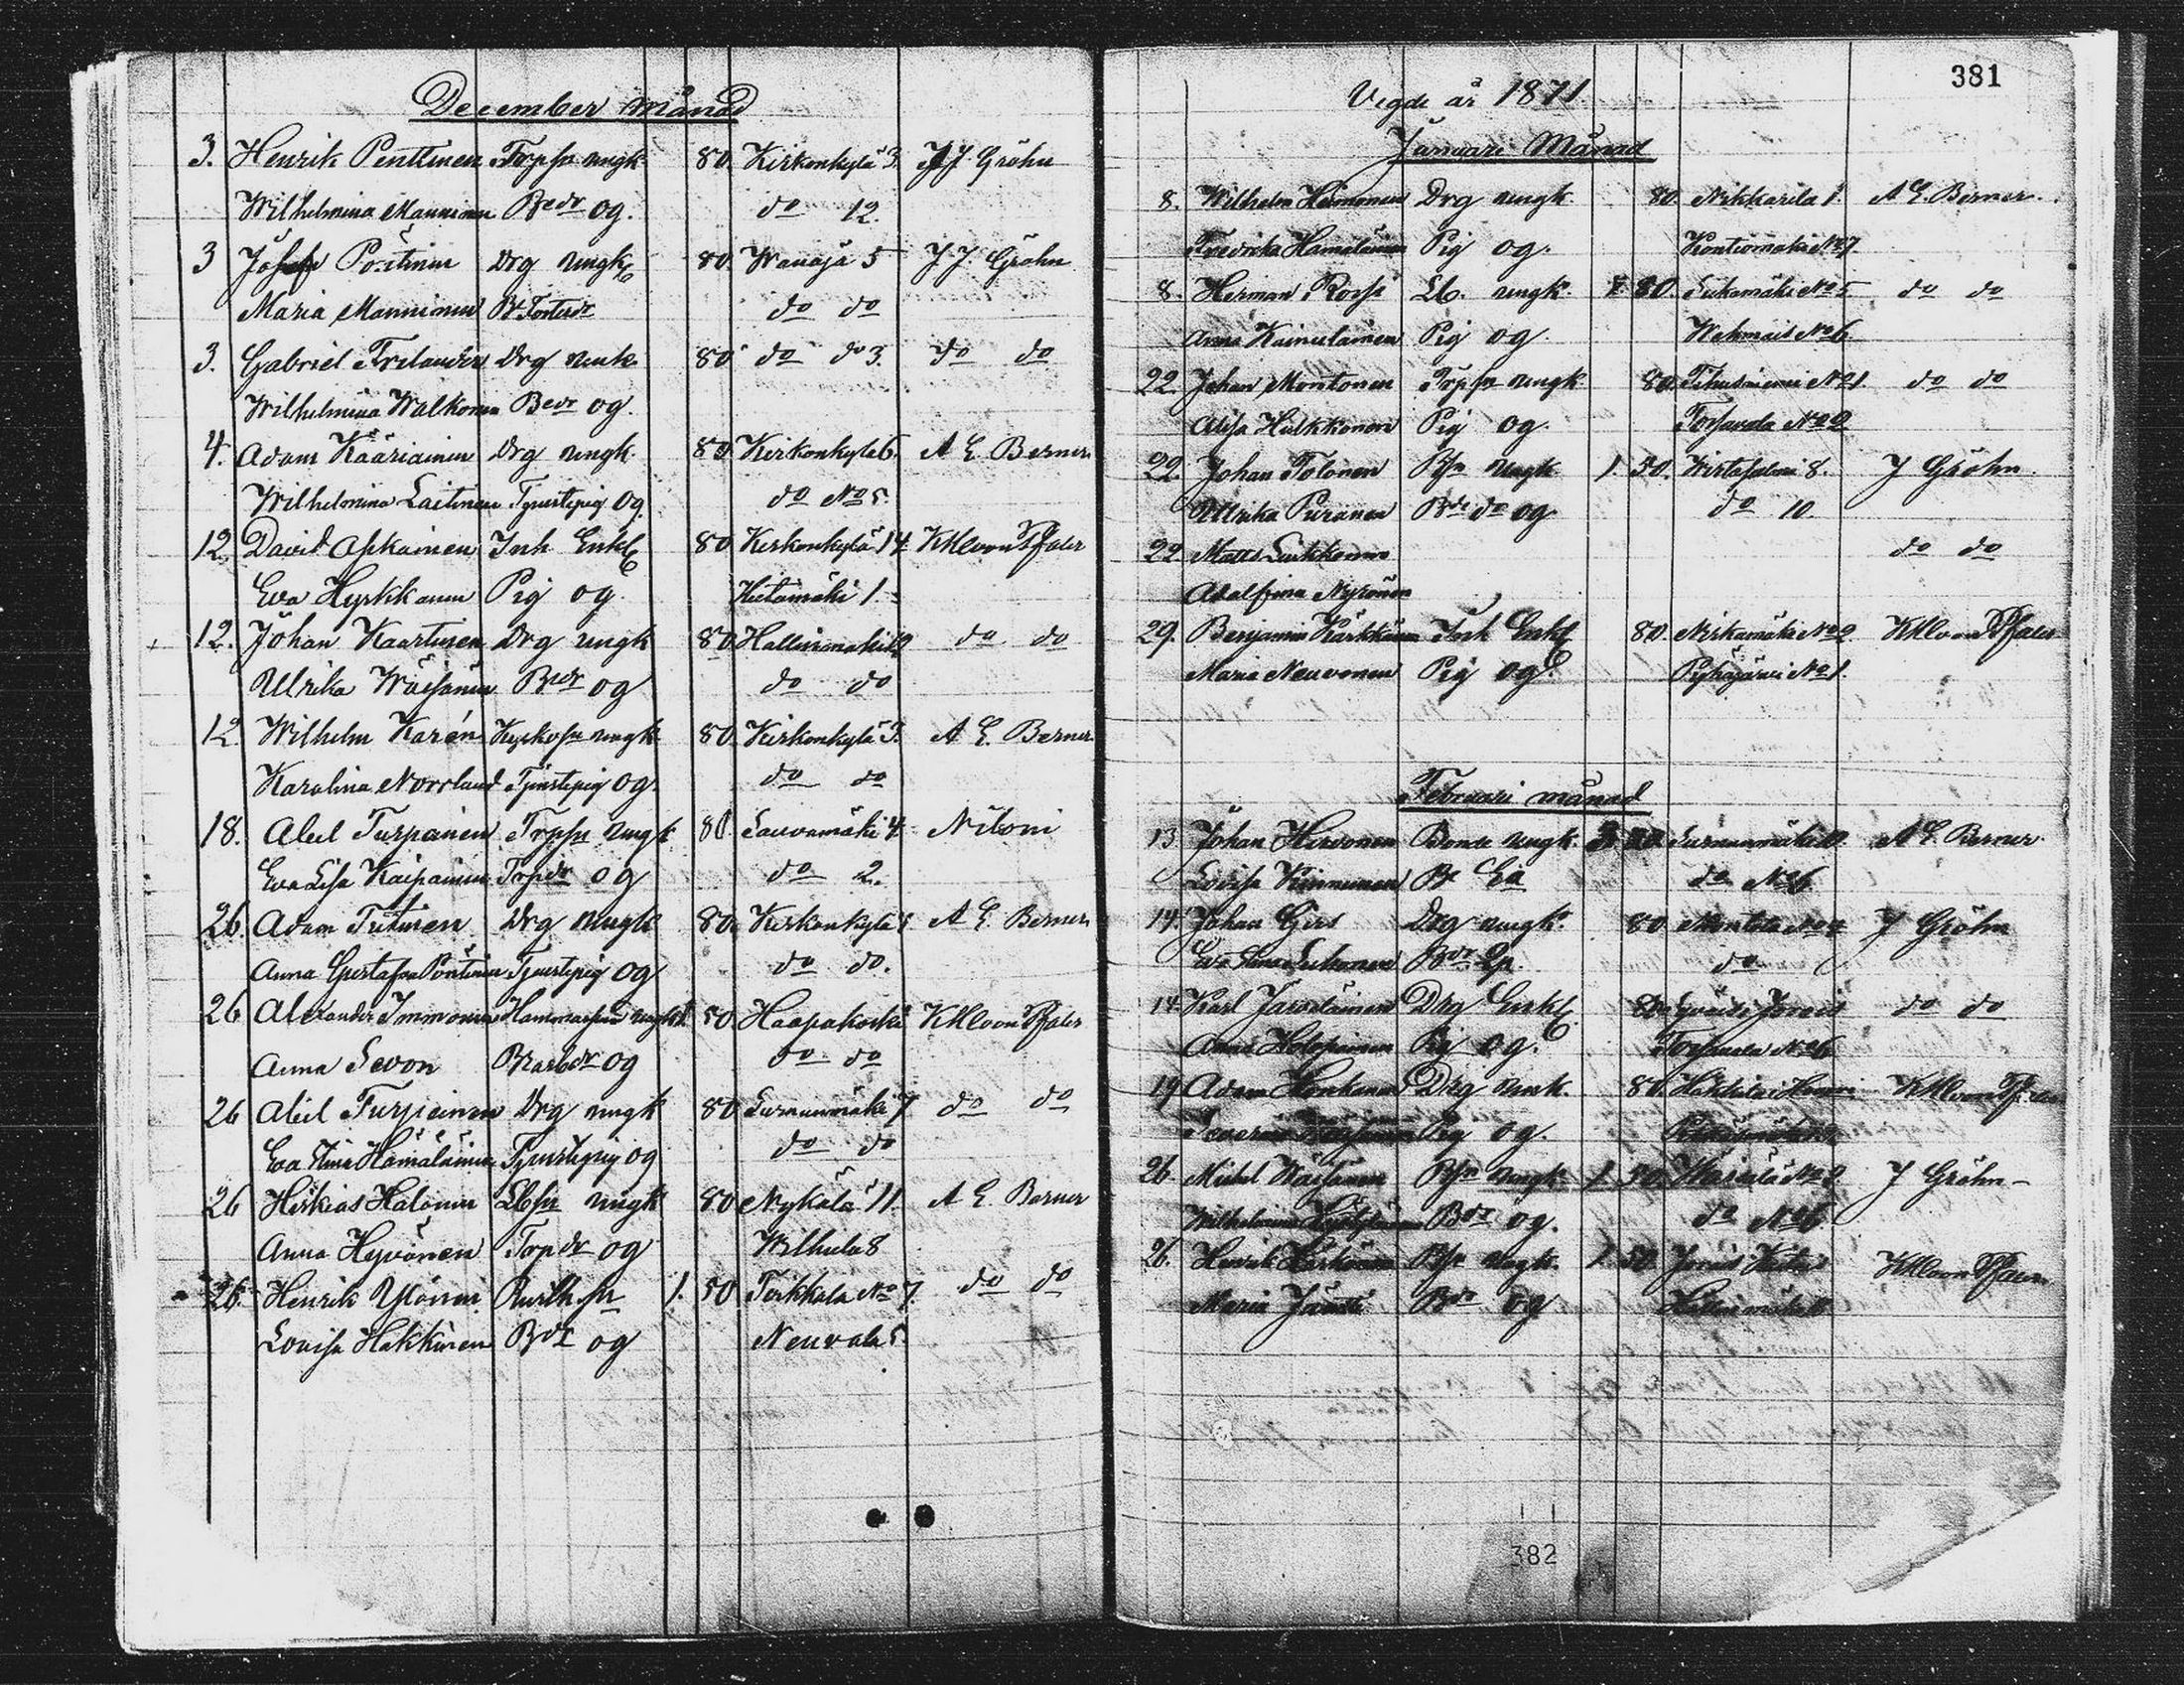 December månad
3. Henrik Penttinen Torpsn ungk 80. Kirkonkylä 3. J J Gröhn
Wilhelmina Manninen Bedr og. do 12.
3 Josef Pöntinen Drg ungk 80. Wanaja 5 J J Gröhn
Maria Manninen do do
3. Gabriel Frilander Drg unk 80 do do 3. do do
Wilhelmina Walkonen Bedr og.
4. Adam Kääriainen Drg ungk. 80 Kirkonkylä 6. A E. Berner.
Wilhelmina Laitinen Tjenstepig og. do No 5.
12. David Apkainen Inh Enkl 80 Kirkonkylä 14 KHlvon Pfaler
Eva Hyrkkanen Pig og. Hietamäki 1.
12. Johan Kaartinen Drg ungk 80 Hallinmäki 12 do do
Ulrika Wäisänen Bedr og do do
12. Wilhelm Karén ungk 80 Kirkonkylä 3. A E. Berner
Karolina Norrland Tjenstepig og. do do
18. Abel Turpeinen Torpsn ungk 80. Sauvamäki 4. Niloni
Eva Lisa Kaipainen Torpdr og do 2.
26. Adam Tutinen Drg ungk 80. Kirkonkylä A E. Berner
Anna Gustafva Pöntinen Tjenstepig og do do.
26 Alexander Immonen ungk 1. 50 Haapakoski KHlvon Pfaler
Anna Sevon og do do
26 Abel Turpeinen Drg ungk 80 Surnunmäki 7 do do
Eva Stina Hämäläinen Tjenstepig og do do
26 Heskias Halonen Lbsn ungk 80 Nykälä 11. A E. Berner
Anna Hyvönen Torpdr og Wilhula 8
26. Henrik Ylönen 1. 50 Torkkala No 7. do do
Lovisa Hakkinen Bdr og Neuvala 5.
381
Vigde år 1871.
Januari Månad
8. Wilhelm Heimonen Drg ungk. 80. Nikkarila 1. A E. Berner.
Fredrika Hämäläinen Pig og. Kontiomäki No 7
8. Herman Rossi Lb. ungk. 80. Lukamäki No 5 do do
Anna Kainulainen Pig og. Wehmais No 6.
22. Johan Montonen Torpsn ungk. 80. Tihusniemi No 1. do do
Alisa Hulkkonen Pig og. Torsanda No 2
22. Johan Tolonen Bsn ungk 1. 50. Wirtasalmi 8. J Gröhn
Ulrika Puranen Bdr do og do 10.
22 Matts Luikkonen do do
Adalfina Nyrönen
29. Benjamin Karkkainen Inh Enkl 80. Niskamäki No 2 KHlvon Pfaler
Maria Neuvonen Pig og. Pyhäjärvi No 1.
Februari månad
13. Johan Hirvonen Bonde ungk. Surnunmäki 10. A E. Berner.
Lovisa Kinnunen do No 6
14. Johan Girs Drg ungk. 80. Montola No J Gröhn
Eva Stina Luhonen Bdr do
14. Karl Jävälainen Drg Enkl 80. do do
Anna Holopainen Pig og. Torsanda No 6
19. Adam Honkanen Drg unk. 80. KHlvon Pfaler
Pig og.
26 Mickel Wäisänen Bsn ungk. 1 50. J Gröhn
Wilhelmina Bdr og. do No 6
26. Henrik Bsn ungk. 1 50. KHlvon Pfaler
Maria Jäntti Bdr og
382